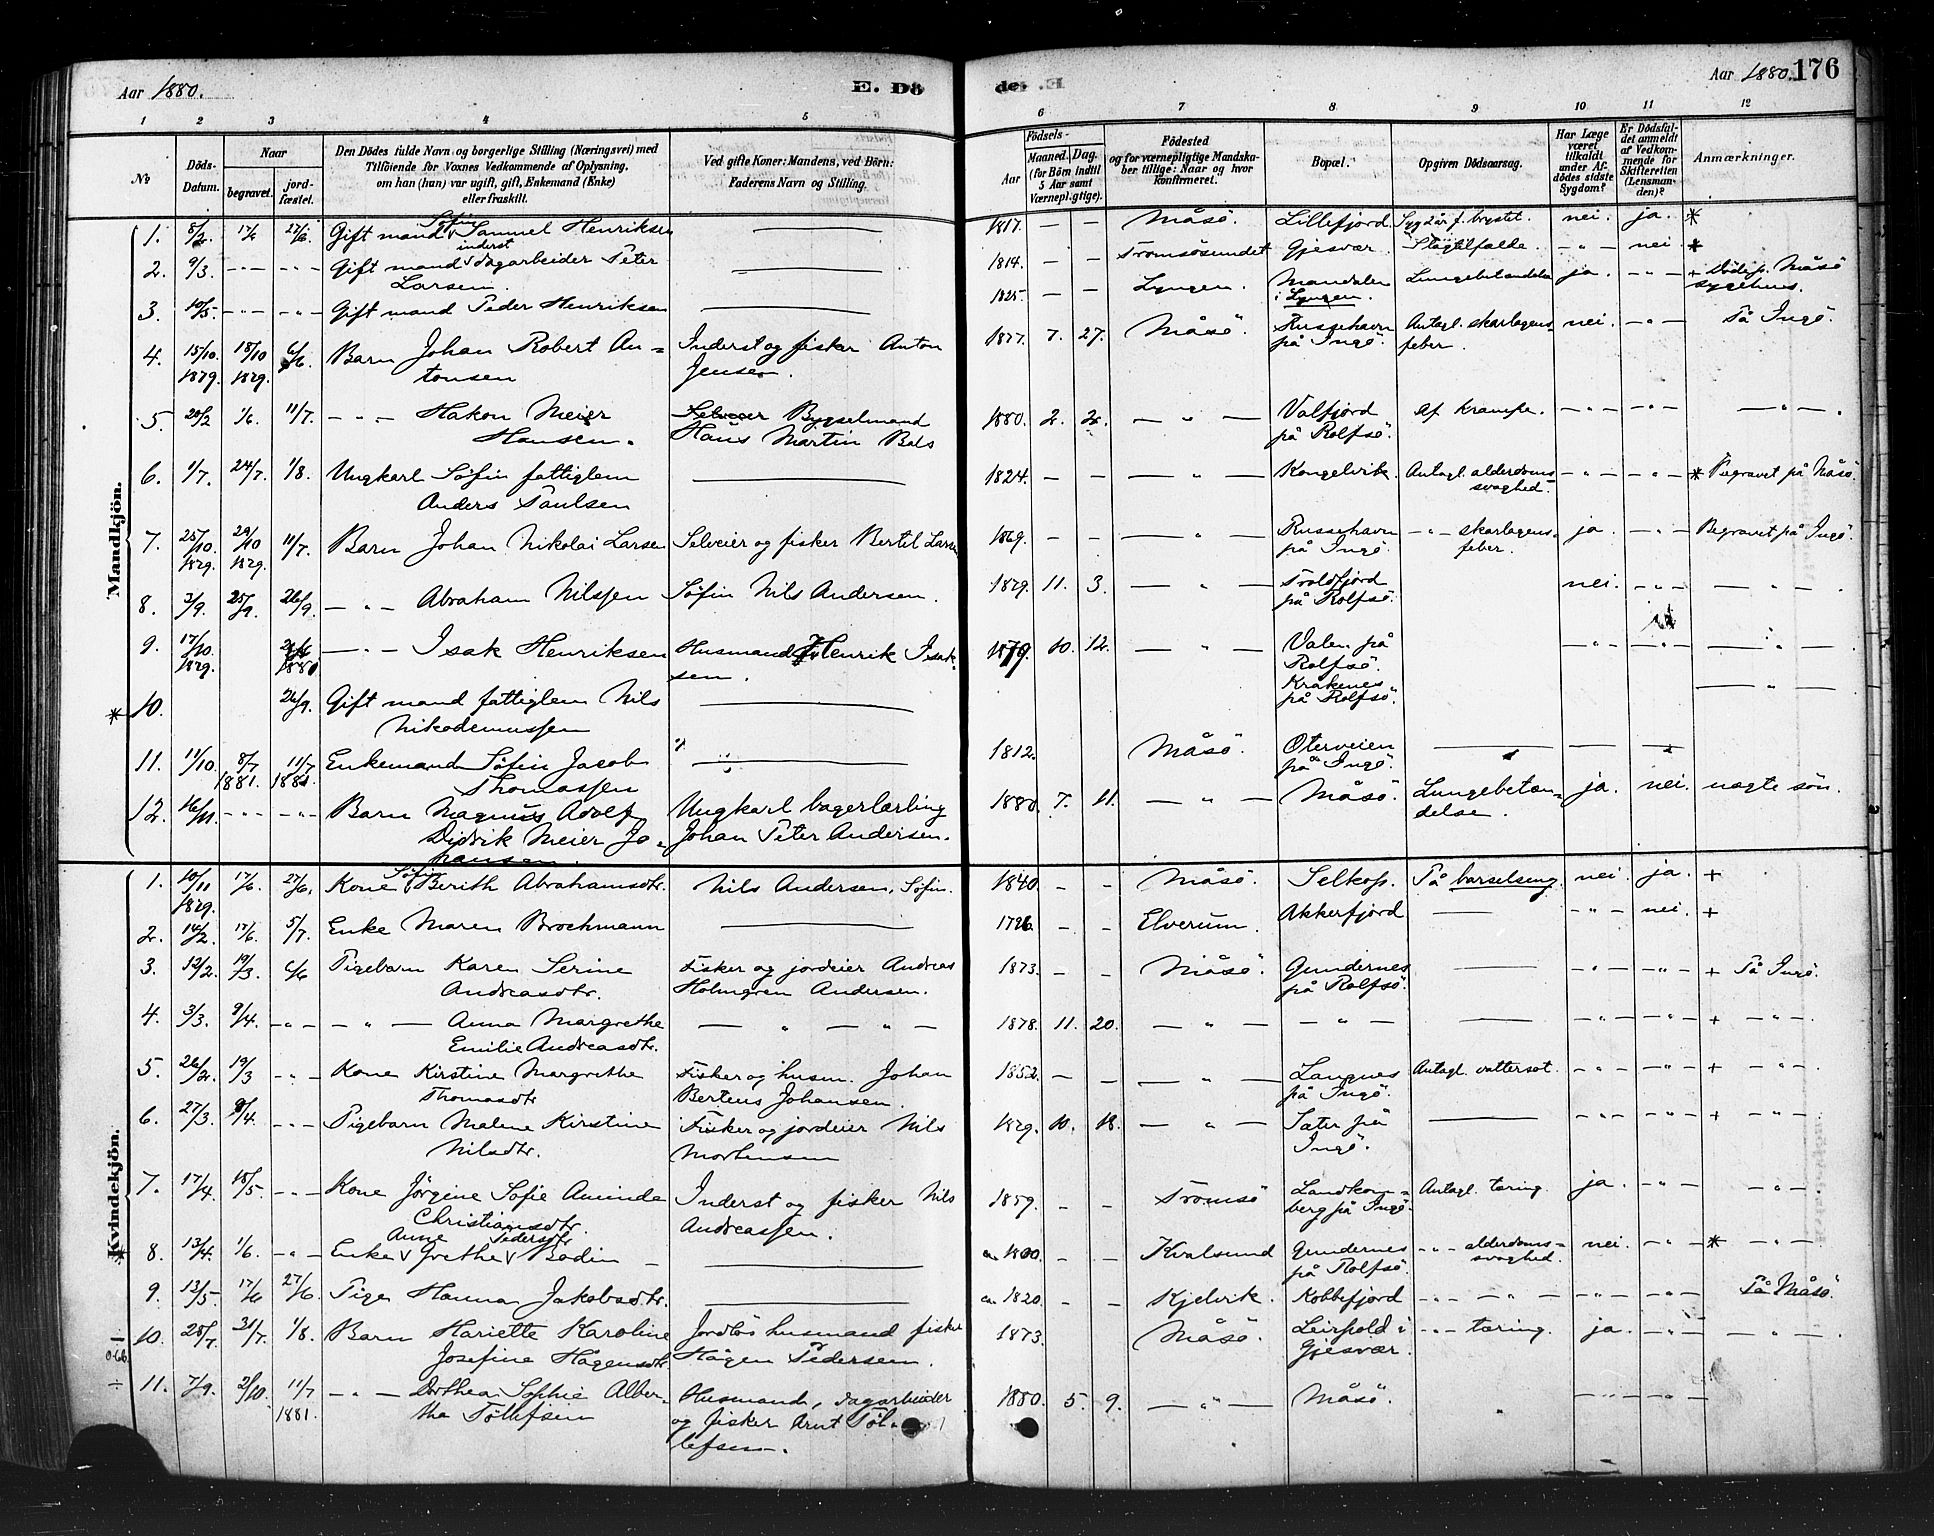 Aar 1880.
E. Dö
de. E.
Aar 1880. 176
1 2 3 4 5 6 7 8 9 10 11 12
No
Döds-Datum.
Naar
begravet.
jord-fæstet.
Den Dödes fulde Navn og borgerlige Stilling (Næringsvei) med
Tilföiende for Voxnes Vedkommende af Oplysning,
om han (hun) var ugift, gift, Enkemand (Enke)
eller fraskilt.
Ved gifte Koner: Mandens, ved Börn:
Faderens Navn og Stilling.
Födsels-
Aar
Maaned. Dag.
(for Börn indtil 5 Aar samt Værnepligtige).
Födested
og for værnepligtige Mandska-
ber tillige: Naar og hvor
konfirmeret.
Bopæl.
Opgiven Dödsaarsag.
Har Læge været tilkaldt under Afdödes sidste Sygdom?
Er Dödsfaldet anmeldt af Vedkommende for Skifteretten (Lensmanden)?
Anmærkninger.
Mandkjön.
1. 8/2 17/6 27/6 Gift mand Søfin Samuel Henriksen — 1817. — — Måsö. Lillefjord. brystet. nei. ja. *
2. 9/3. -"- -"- Gift mand inderst dagarbeider Peter Larsen. — 1814. — — Tromsösundet Gjesvær. Slagtilfælde. -"- nei *
3. 10/5. -"- -"- Gift mand Peder Henriksen — 1825. — — Lyngen. Mandalen i Lyngen. Lungebetændelse ja. -"- + Måsö sygehus.
4. 15/10 1879. 18/10 1879. 6/6. Barn Johan Robert Antonsen Inderst og fisker Anton Jensen. 1877. 7. 27. Måsö. Russehavn på Ingö. Antagl. skarlagens feber. nei. -"- På Ingö.
5. 20/2 1/6. 11/7. -"- Hakon Meier Hansen. Bygselmand Hans Martin Bals 1880. 2. 2. — " — Valfjord på Rolfsö. af krampe. -"- -"- — " —.
6. 1/7. 24/7. 1/8. Ungkarl Søfin fattiglem Anders Paulsen — 1824. — — — " — Kongelvik. Antagl. alderdoms svaghed. -"- -"- * Begravet på Måsö.
7. 25/10 1879. 29/10 1879. 11/7. Barn Johan Nikolai Larsen Selveier og fisker Bertil Larsen 1869. — — — " — Russehavn på Ingö. -"- skarlagens-feber. ja. -"- Begravet på Ingö.
8. 3/9. 25/9. 26/9. -"- Abraham Nilssen Søfin Nils Andersen. 1879. 11. 3. — " — Troldfjord på Rolfsö. nei. -"- — " —
9. 17/10 1879. 1880 -"- Isak Henriksen Husmand Henrik Isaksen. 1879. 10. 12. — " — Valen på Rolfsö. -"- -"- — " —
* 10. 26/9. Gift mand fattiglem Nils Nikodemussen — Kråkenes på Rolfsö. — " —
11. 11/10. 8/7 1881. 11/7 1881. Enkemand Søfin Jacob Thomassen — 1812. Måsö. Oterveien på Ingö. — — —
12. 16/11. -"- -"- Barn Magnus Adolf Didrik Meier Johansen. Ungkarl bagerlærling Johan Peter Andersen. 1880. 7. 11. — " — Måsö. Lungebetændelse. ja. nei. uægte sön.
Kvindekjön.
1. 10/11 1879. 17/6. 27/6. Kone Søfin Berith Abrahamsdtr. Nils Andersen, Søfin. 1840. - - Måsö. Selkop. På barselseng. nei. ja. +
2. 14/2. 17/6. 5/7. Enke Maren Brochmann — 1796. - - Elverum. Akkerfjord — -"- nei. +
3. 12/2. 19/3. 6/6 Pigebarn Karen Serine Andreasdtr. Fisker og jordeier Andreas Holmgren Andersen. 1873. - - Måsö. Gundernes på Rolfsö. — -"- -"- + På Ingö.
4. 3/3. 9/4. -"- — " — Anna Margrethe Emilie Andreasdtr. — " — " — 1878. 11. 20. — " — — " — — -"- -"- + -"-
5. 26/2. 19/3 -"- Kone Kirstine Margrethe Thomasdtr Fisker og husm. Johan Bertens Johansen. 1852. — — — " — Langnes på Ingö. Antagl. vattersot. -"- -"- + -"-
6. 27/3. 9/4. -"- Pigebarn Malene Kirstine Nilsdtr. Fisker og jordeier Nils Mortensen 1879. 10. 18. — " — Sater på Ingö. — -"- -"- + -"-
7. 17/4. 18/5. -"- Kone Jörgine Sofie Aminda Christiansdtr. Inderst og fisker Nils Andreassen. 1859. - - Tromsö Landkomberg på Ingö. Antagl. tæring. ja. -"- -"-
* 8. 13/4. 1/6. -"- Enke Anne Grethe Pedersdtr. Bodin — 1800. - - Kvalsund Gundernes på Rolfsö. -"- alderdoms-svaghed. nei. -"- * -"-
9. 12/5. 17/6 27/6. Pige Hanna Jakobsdtr. — ca 1820. - - Kjelvik. Kobbefjord -"- " -"- -"- På Måsö.
10. 28/7. 31/7. 1/8. Barn Hariette Karoline Josefine Hågensdtr. Jordlös husmand fisker Hågen Pedersen. 1873. Måsö. Leirpold i Gjesvær. -"- tæring. ja. -"- — " —
11. 7/9. 2/10. 11/7 1881. -"- Dorthea Sophie Alberthe Tøllefsen Husmand, dagarbeider og fisker Arnt Tøllefsen. 1880. 5. 9. — " — Måsö. -"- -"-